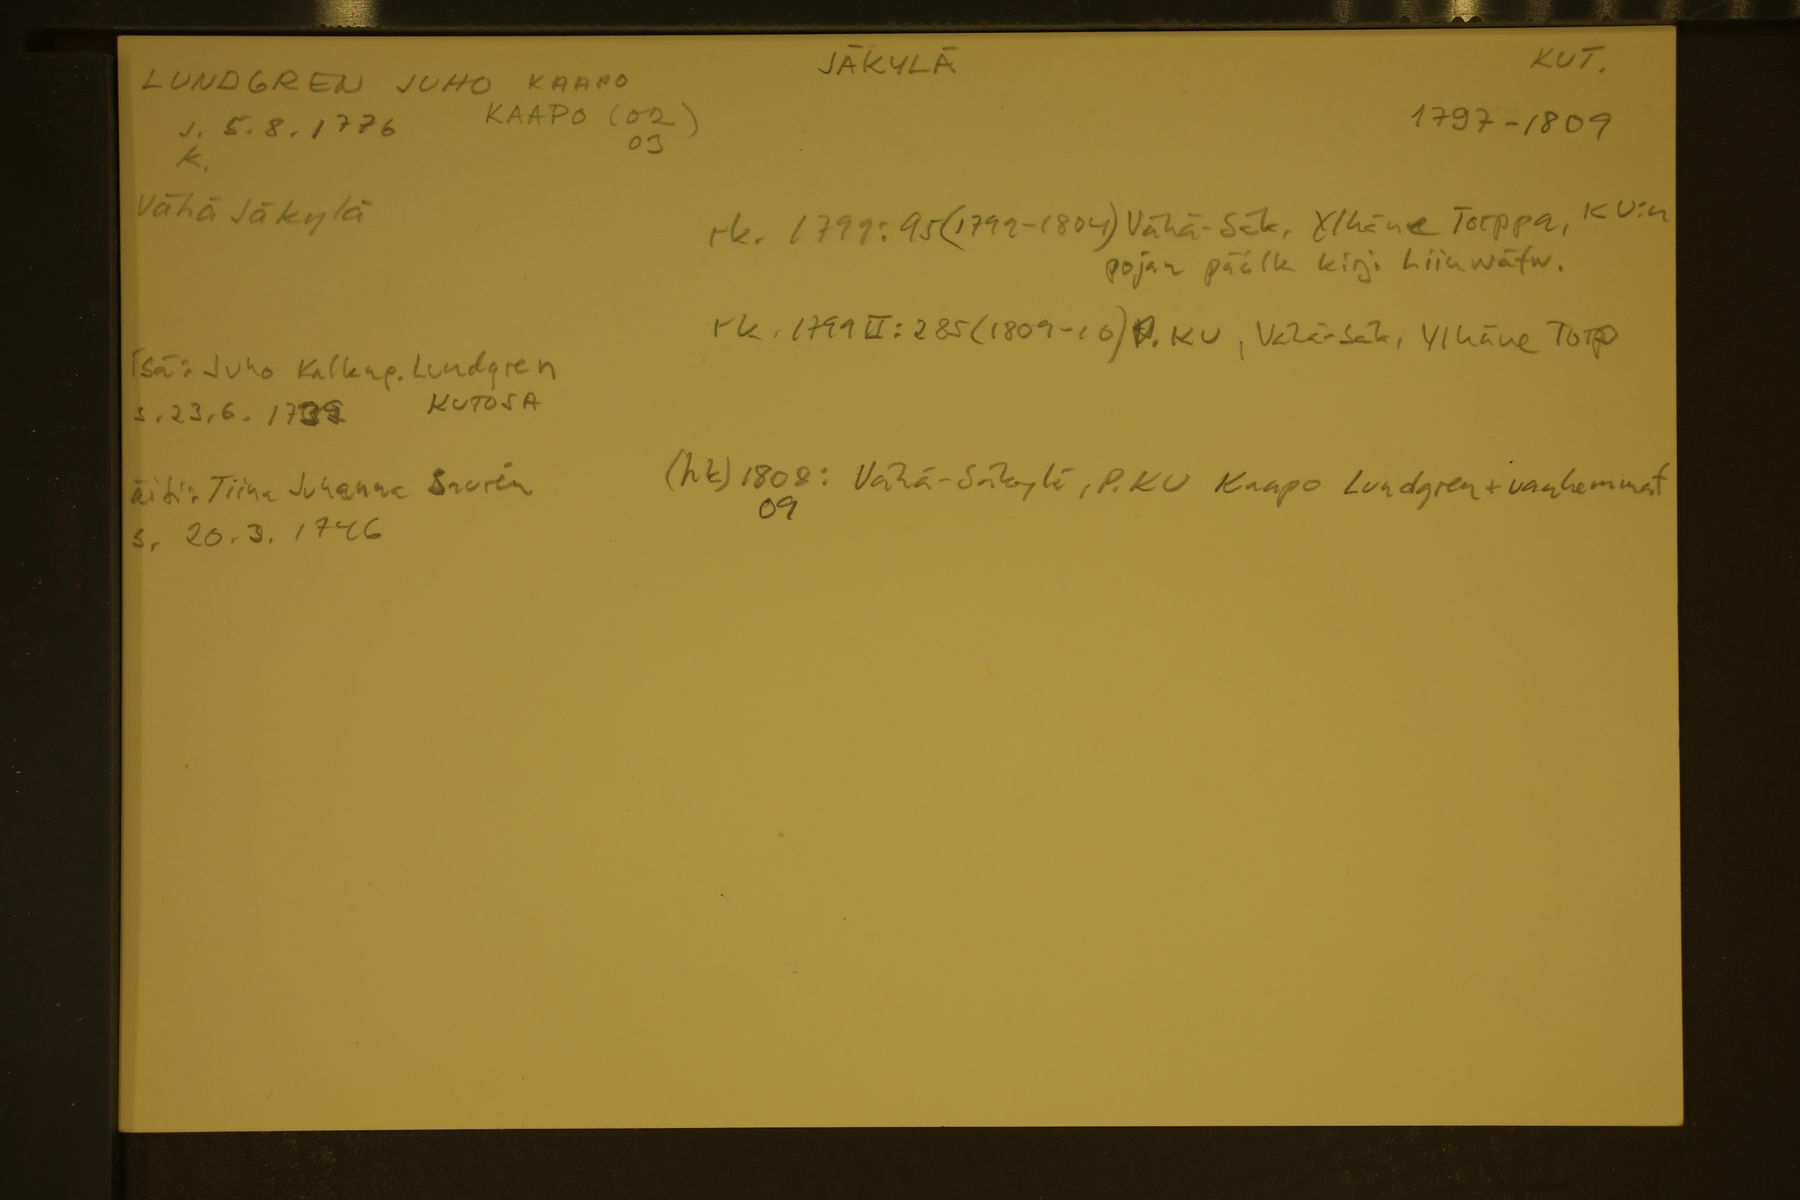 LUNDGREN JUHO KAAPO
KAAPO (02
03)
JÄKYLÄ
KUT.
s. 5.8.1776
k.
1797-1809
Vähä Säkylä
rk. 1799: 95 (1799-1804) Vähä-Säk. Ylhäne Torppa, KU:n
pojan päälk kirj. Liinwäfw.
rk. 1799 II: 285 (1809-10) P. KU, Vähä-Säk, Ylhäne Torp
Isä: Juho Kalkup. Lundgren
s. 23.6. 1739 KUTOSA
äiti: Tiina Juhanna Saurén
s. 20.3. 1746
(hk) 1808: Vähä-Säkylä, P. KU Kaapo Lundgren + vanhemmat
09